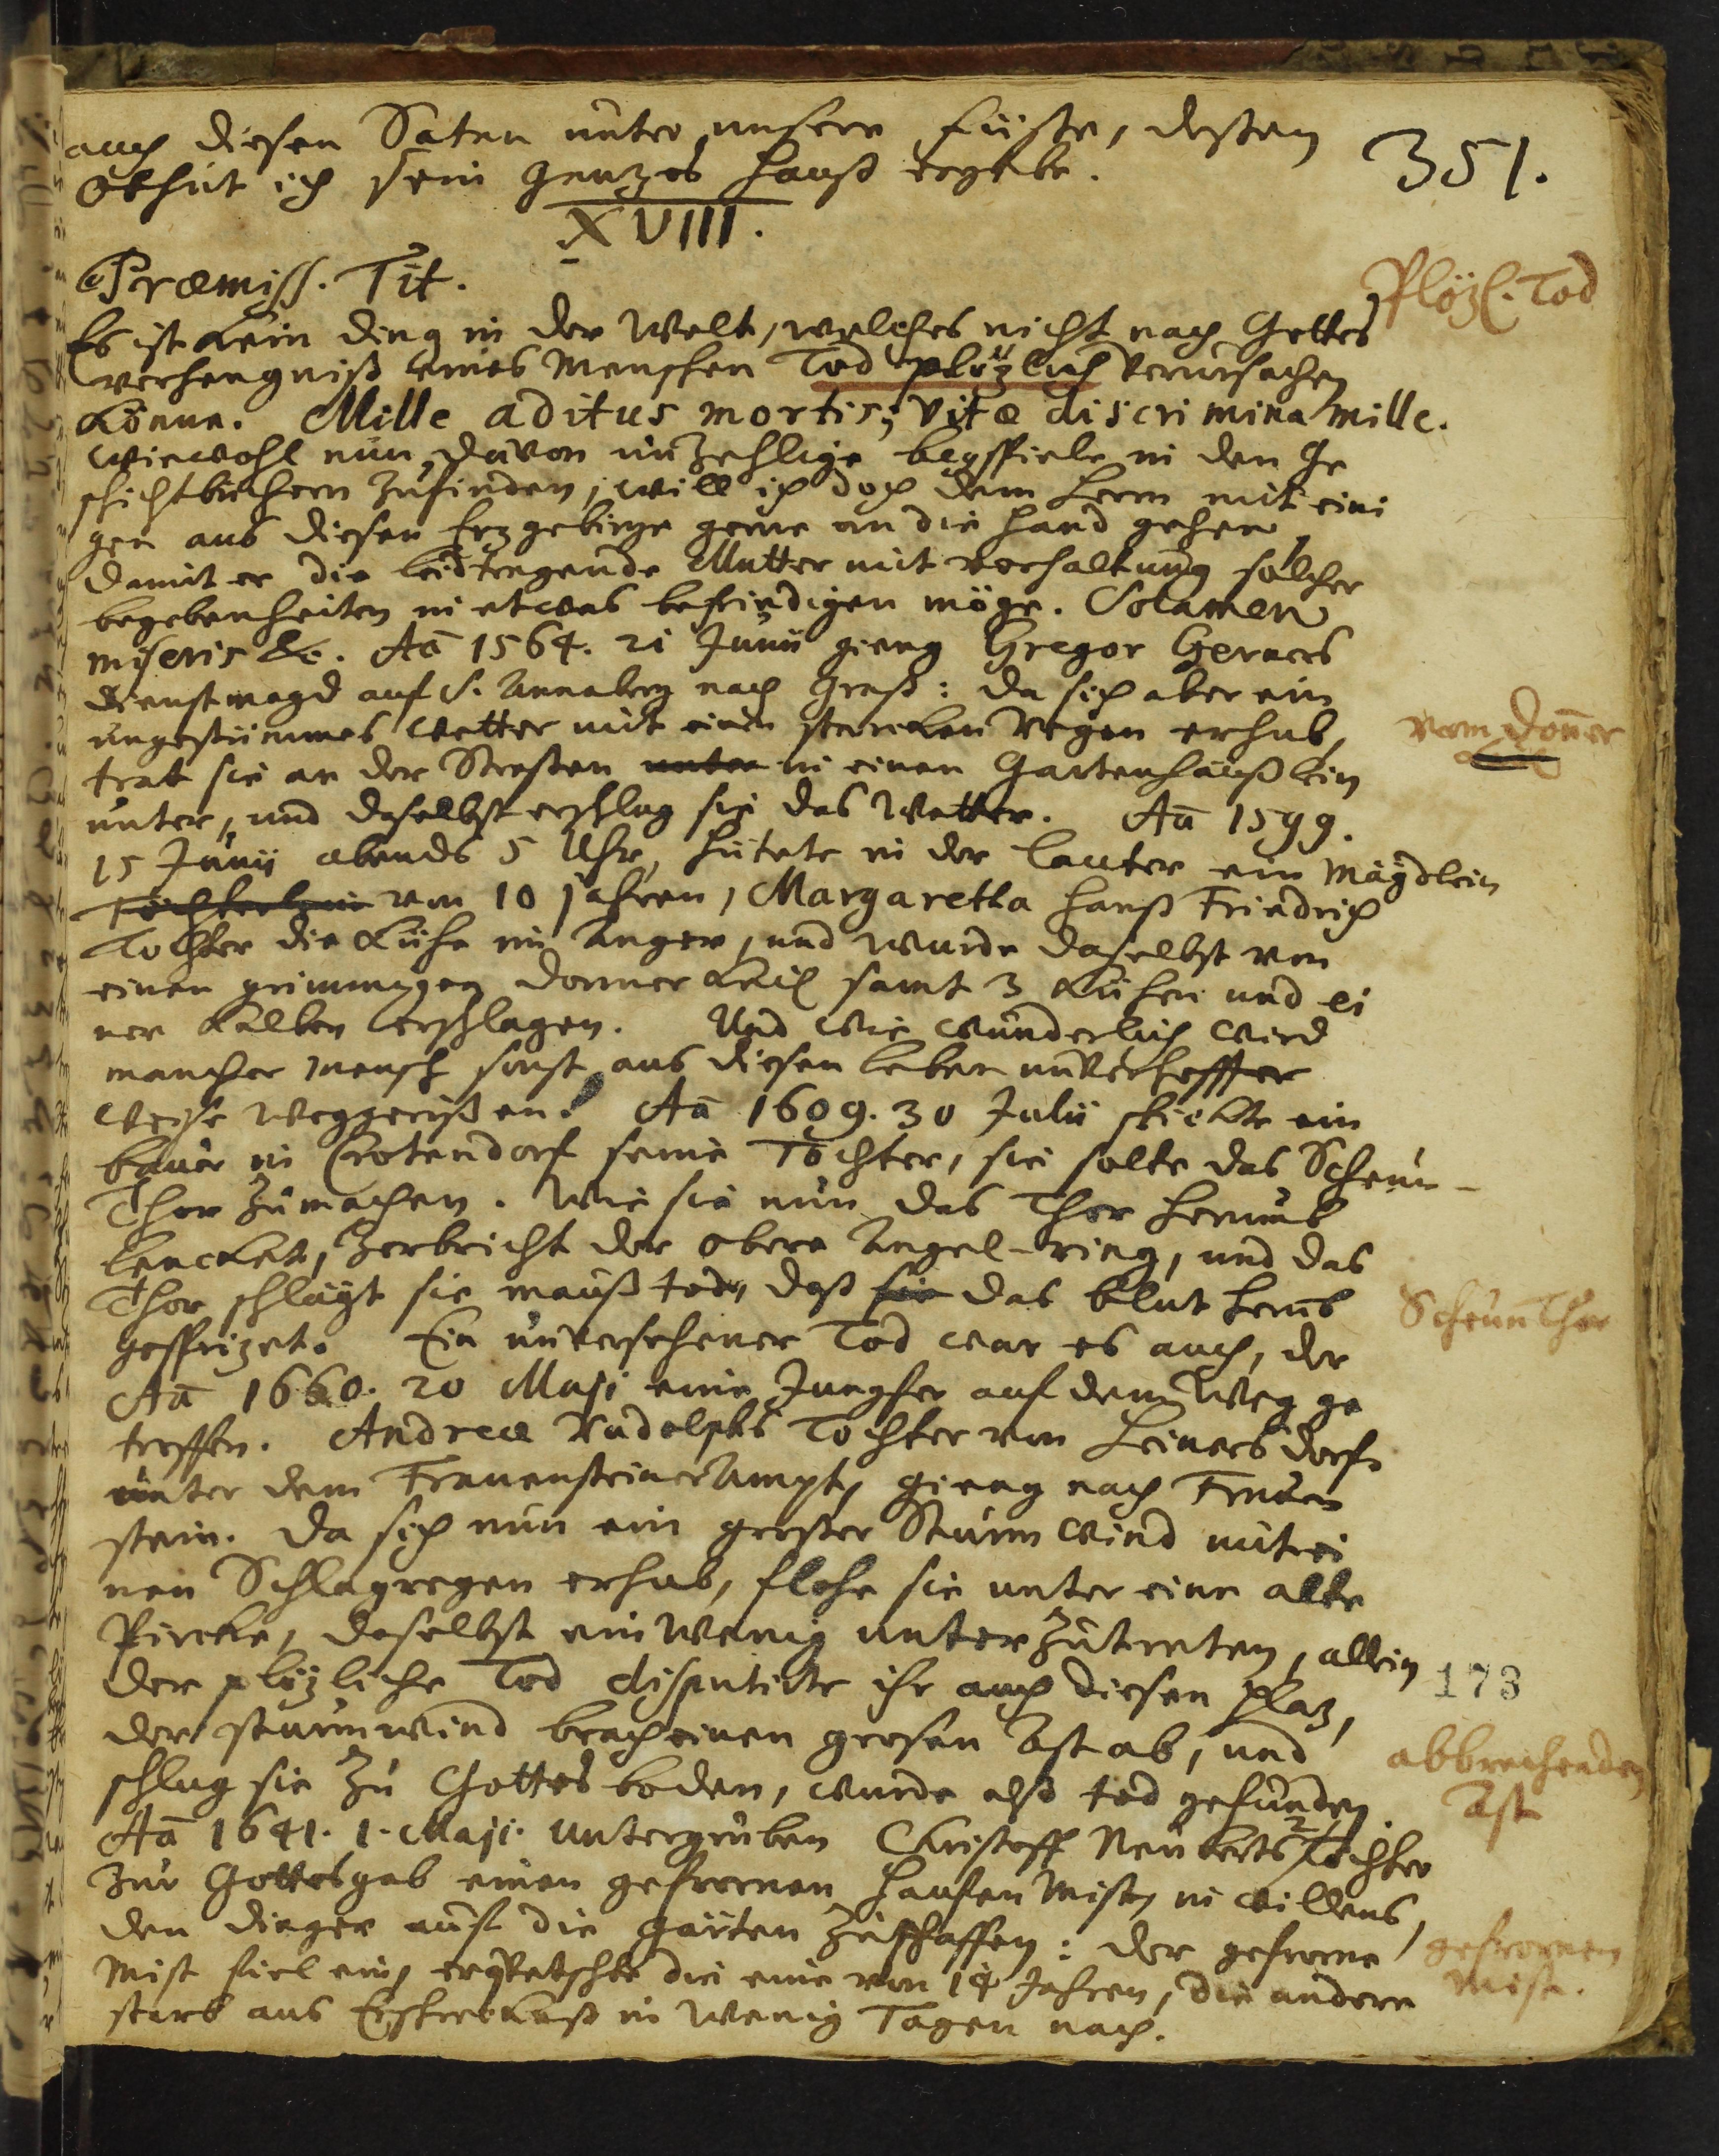 auch diesen Satan unter unsere füße, dessen
Obhut ich sein gantzes Hauß ergebe.
351.
XVIII.
Præmiss. Tit.
Plözl. Tod
Es ist kein ding in der Welt, welches nicht nach Gottes
verhengniß eines Menschen Tod plözlich verursachen
könne. Mille aditus mortis, vitæ discrimina mille.
Wiewohl nun davon unzehlige beyspiele in den Ge
schichtbüchern zufinden, will ich doch dem Herrn mit eini
gen aus diesen Erzgebirge gerne an die hand gehen,
damit er die leidtragende Mutter mit vorhaltung solcher
begebenheiten in etwas befriedigen möge. Solamen
miseris &c. Aõ 1564. 21 Junii gieng Gregor Gerners
dienstmagd auf S. Annaberg nach Graß: da sich aber ein
ungestümmes Wetter mit einen starcken Regen erhub,
vom Doñer
trat sie an der Straßen unter in einen Gartenhäußlein
unter, und daselbst erschlug sie das Wetter. Aõ 1599.
15 Junii abends 5 Uhr, hütete in der Lauter ein Mägdlein
Töchterlein von 10 jahren, Margaretha Hanß Friedrich
Tochter die Kühe im Anger, und wurde daselbst von
einen grimmigen Donnerkeil samt 3 Kühen und ei
ner Kalben erschlagen. Und wie wunderlich wird
mancher Mensch sonst aus diesen leben unverhoffter
weise weggerißen! Aõ 1609. 30 Julii schickte ein
bauer in Crotendorf seine Tochter, sie solte das Scheun-
Thor zumachen. Wie sie nun das Thor herumb
lencket, zerbricht der obere Angel-ring, und das
Thor schlägt sie mauß tod, daß sie das blut herumb
Scheunthor
gesprizet. Ein unversehener Tod war es auch, der
Aõ 1660. 20 Maji eine Jungfer auf dem Weg ge
troffen. Andreæ Rudolphs Tochter von Heinersdorf
unter dem Frauensteiner Ampt, gieng nach Frauen
stein. Da sich nun ein großer Sturmwind mit ei
nen Schlagregen erhub, flohe sie unter eine alte
Pircke, daselbst ein wenig unterzutreten, allein
173
der plözliche Tod disputirte ihr auch diesen plaz,
der sturmwind brach einen grosen Ast ab, und
abbrechenden
Ast
schlug sie zu Gottes boden, wurde also tod gefunden.
Aõ 1641. 1. Maji. untergruben Christoff Neuberts 2 Töchter
zur Gottesgab einen gefrornen Haufen Mist, in willens,
den dinger auf die gärten zuschaffen: der gefrorne
gefrornen
Mist.
Mist fiel ein, erqvetschte die eine von 14 Jahren, die andere
starb aus Erschreckniß in wenig Tagen nach.